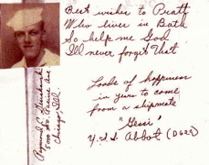 Best wishes to Pratt
Who lives in Bath
So help me God
I'll never forget that
Loads of happiness
in years to come
from a shipmate
"Geri"
U.S.S. Abbot (D629)
Raymond C.
Chicago, Ill.